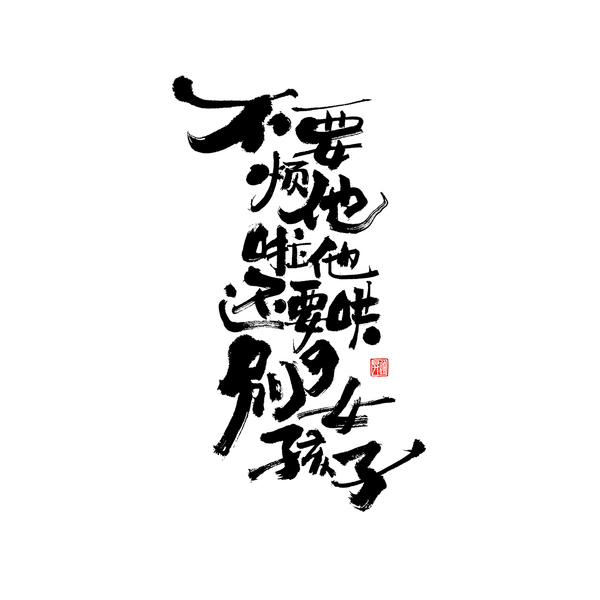 不要
烦他
啦他
还要哄
别的
女
孩子